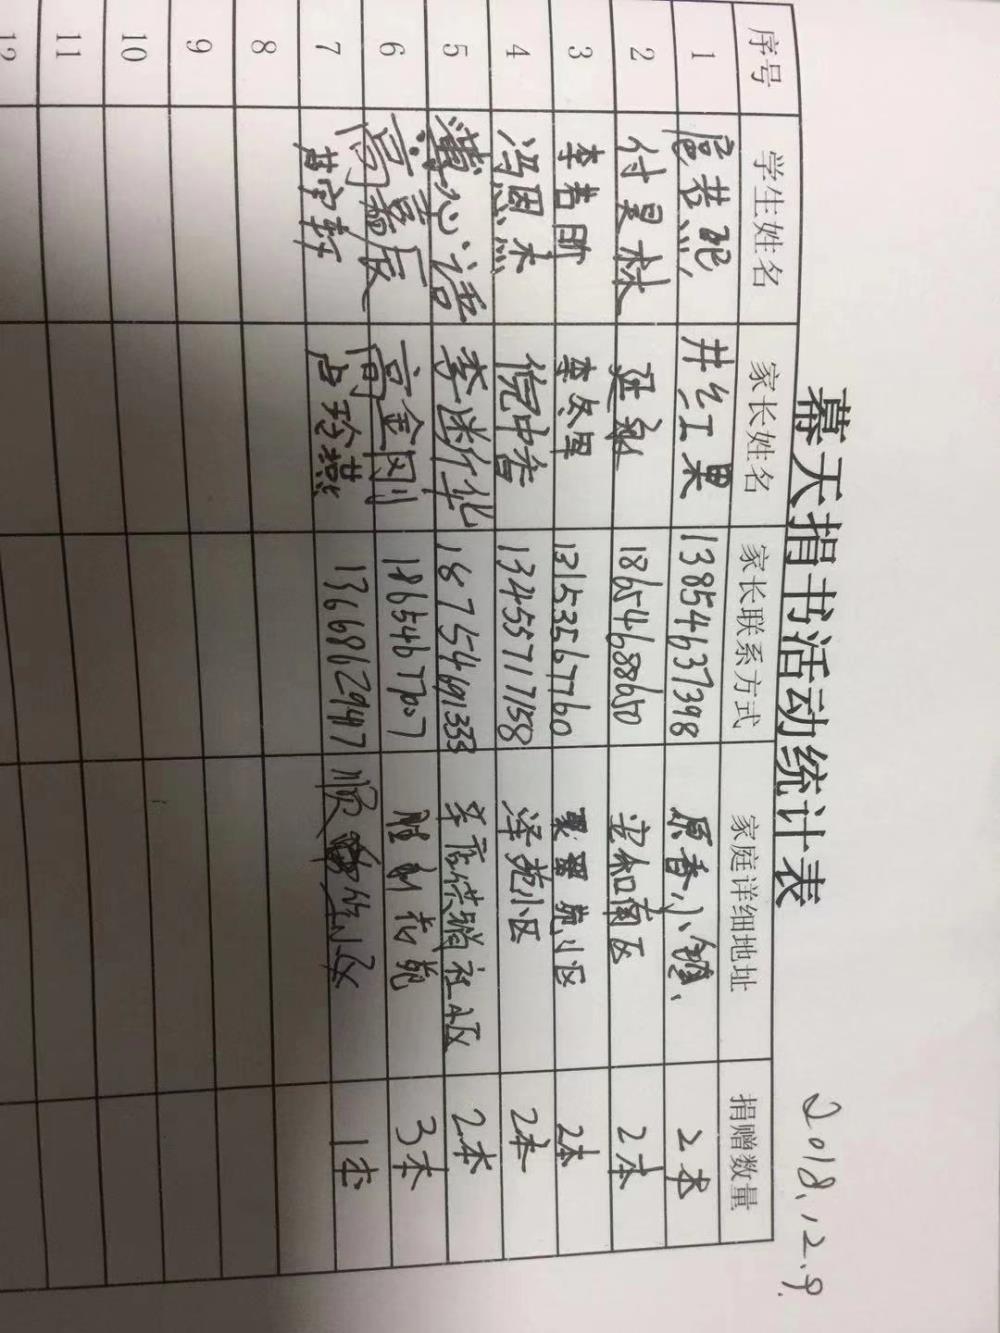 幕天捐书活动统计表
2018.12.9.
序号 学生姓名 家长姓名 家长联系方式 家庭详细地址 捐赠数量
1 扈若熙 井红果 13854637398 原香小镇 2本
2 付昊林 延永 18654688650 安和南区 2本
3 李若 李冬果 13153567760 翠苑小区 2本
4 冯恩杰 倪中香 13455717158 泽苑小区 2本
5 心语 李 华 18754691333 辛店供销社A区 2本
6 高嘉辰 高金刚 18654677007 胜利花苑 3本
7 苗宇轩 占玲燕 13668629947 顺 小区 1本
8
9
10
11
12